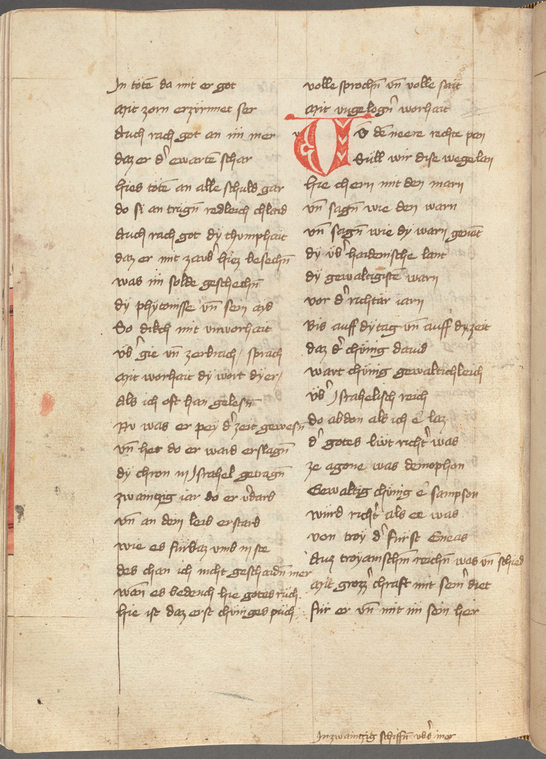 In tote da mit er got
Mit zorn erzürnnet ser
Auch rach got an im mer
daz er d' ewarten schar
hies toten an alle schuld gar
do si an trugn redleich chlaid
Auch rach got dy chumphait
daz er mit zaub' hiez beschechn
was im solde geschechn
dy phytonisse vn sein ayd
So dikch mit vnworhait
vb' gie vn zerbrach / sprach
Mit worhait dy wort dy er /
als ich oft han gelesn
Nv was er pey d' zeit gewesn
vn her do er ward erslagn
dy chron in Israhel getragn
zwaintzig iar do er v'darb
vn an dem leib erstarb
wie es fürbaz vmb in ste
des chan ich nicht geschaidn mer
wan es bedeuch hie gotes rüch
hie ist daz erst chüniges püch
volle sprochn vn volle sait
Mit vngelogn' worhait
Uo de neere rechte pan
Süll wir dise wege lan
hie chern mit den marn
vn sagn wie den warn
vn sagn wie dy warn genat
dy vb' haidenische lant
dy gewaltigiste warn
vor d' richtär iarn
Bis auff dy tag vn auff dy zeit
daz d' chünig dauid
wart chünig gewaltichleich
vb' Israhelisch reich
do abdon als ich e laz
d' gotes lüwt richt' was
ze agone was demophon
Gewaltig chünig e sampson
würd richt' als ee was
von troy d' fürst Eneas
Auz troyanischm reichn was vn schied
Mit grozz' chraft mit sein' diet
für er vn mit im sein her
In zwaintzig schiffn vb' mer